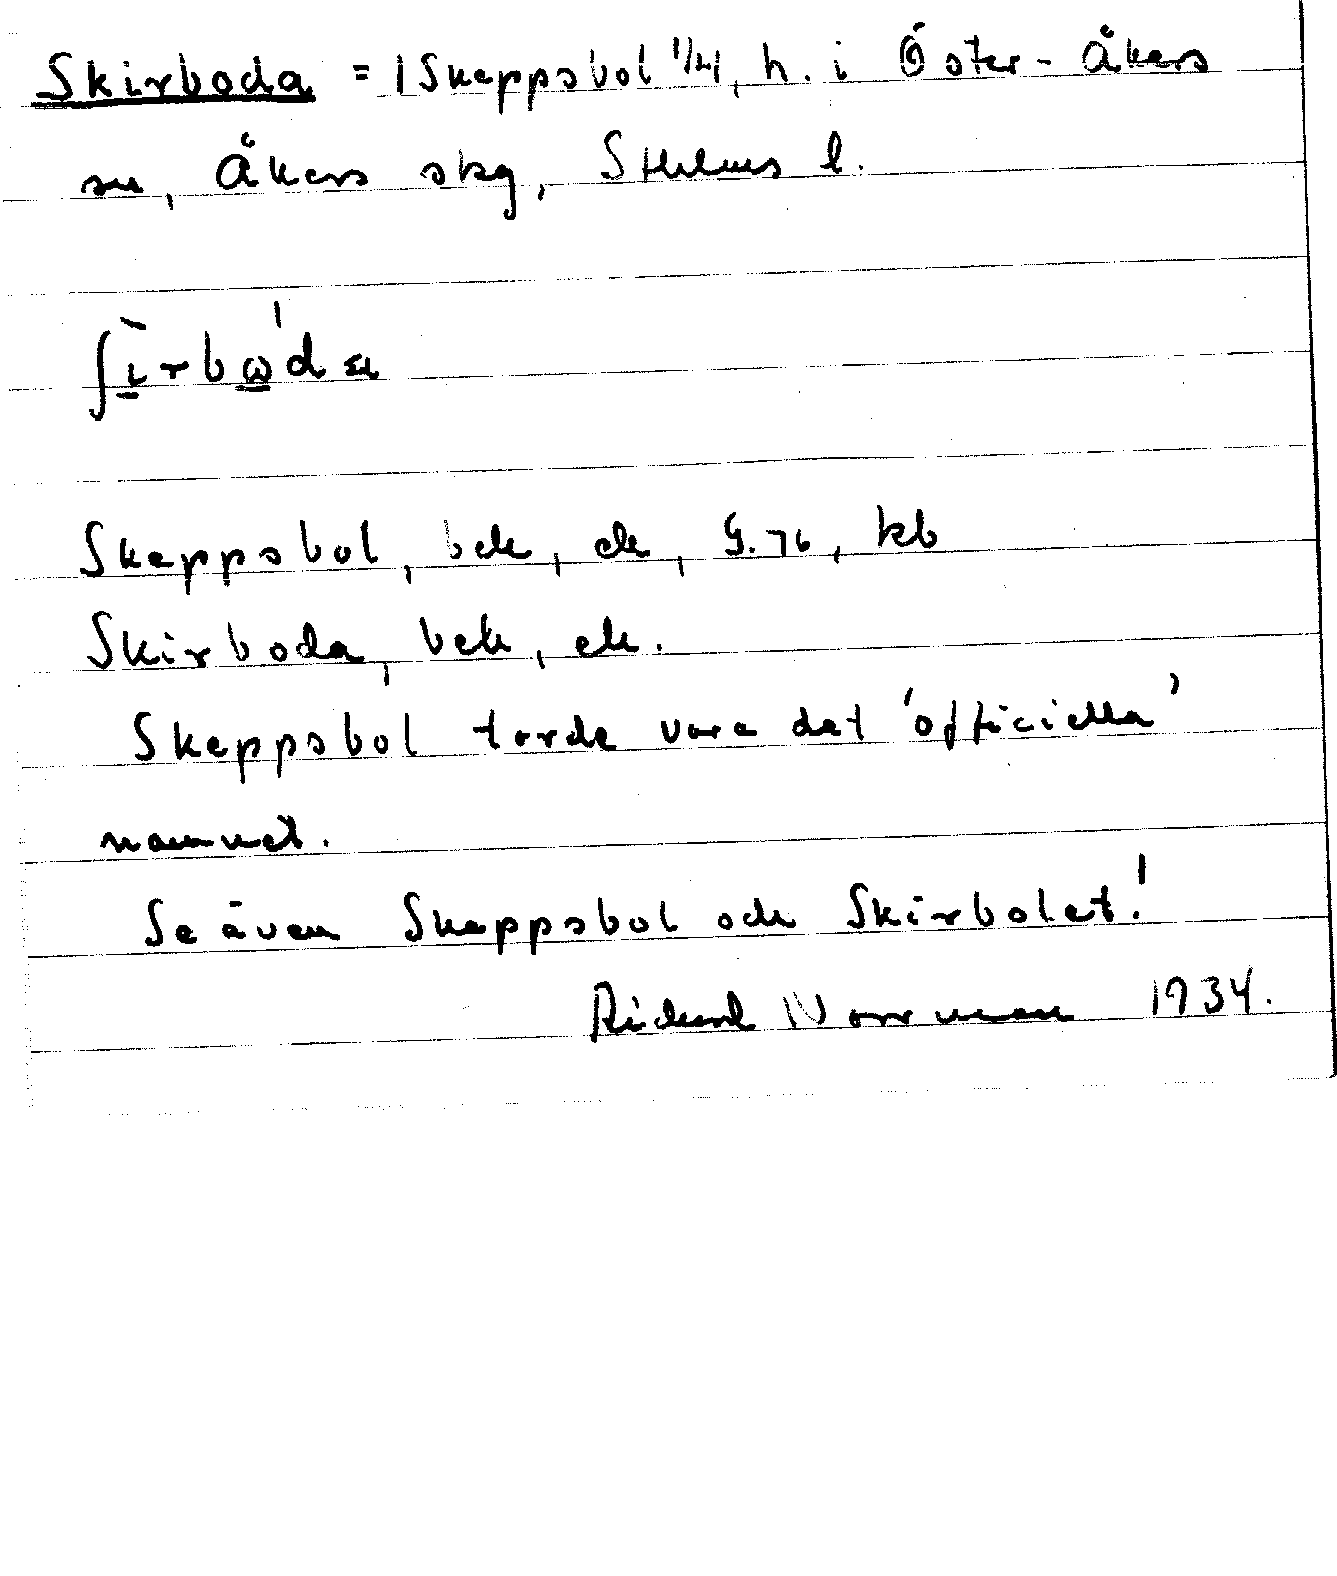 Skirboda = /Skeppsbol 1/4/, h. i Öster-Åkers
sn, Åkers skg, Sthlms l.
ʃìrbωda
Skeppsbol, bek, ek, G.76, kb
Skirboda, bek, ek.
Skeppsbol torde vara det 'officiella'
namnet.
Se även Skeppsbol och Skirbolet!
Rickard Norrman 1934.